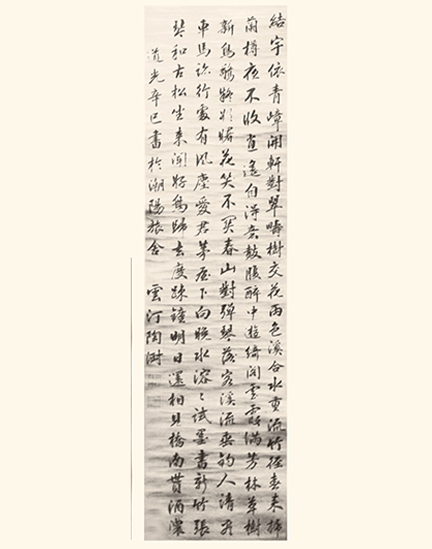 結宇依青嶂開軒對翠疇樹交花兩色溪合水重流竹徑春來掃
蘭樽夜不收逍遙自得意鼓腹醉中遊綺閣雲霞滿芳林草樹
新鳥驚疑欲曙花笑不關春山對彈琴落客溪流垂釣人清看
車馬訪行處有風塵愛君茅屋下向晚水溶〻試墨書新竹張
琴和古松坐來聞好鳥歸去度疎鐘明日還相見橋南貰酒濃
道光辛巳書於潮陽旅舍 雲汀陶澍